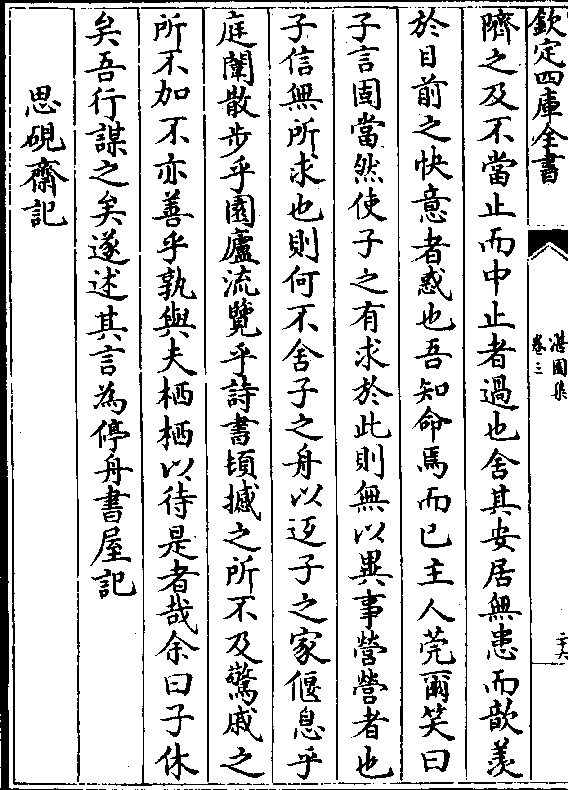 欽定四庫全書
湛園集
卷三
二十六
隮之及不當止而中止者過也舍其安居無患而歆羨
於目前之快意者惑也吾知命焉而已主人莞爾笑曰
子言固當然使子之有求於此則無以異事營營者也
子信無所求也則何不舍子之舟以迓子之家偃息乎
庭闈散步乎園廬流覽乎詩書頃撼之所不及驚戚之
所不加不亦善乎孰與夫栖栖以待是者哉余曰子休
矣吾行謀之矣遂述其言為停舟書屋記
思硯齋記